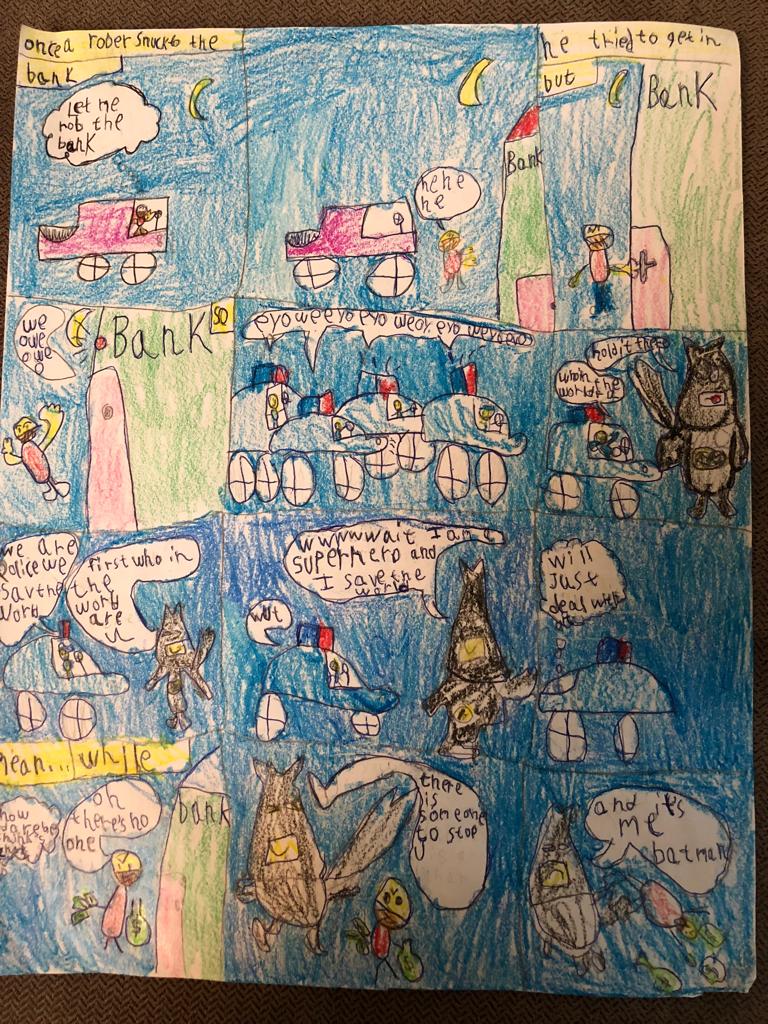 once a rober snuck to the
bank
Let me
rob the
bank
hehe
he
Bank
he tried to get in
but
Bank
we
owe
owe
o
Bank
so
eyo wee yo eyo
hold it there
who in the
world
we are
police we
sav the
world
first who in
the
world
are
u
wwwwwait I am a
superhero and
I save the
world
wat
will
just
deal with
mean... while
how
dare
oh
there's no
one
bank
there
is
someone
to stop
u
and it's
me
batman